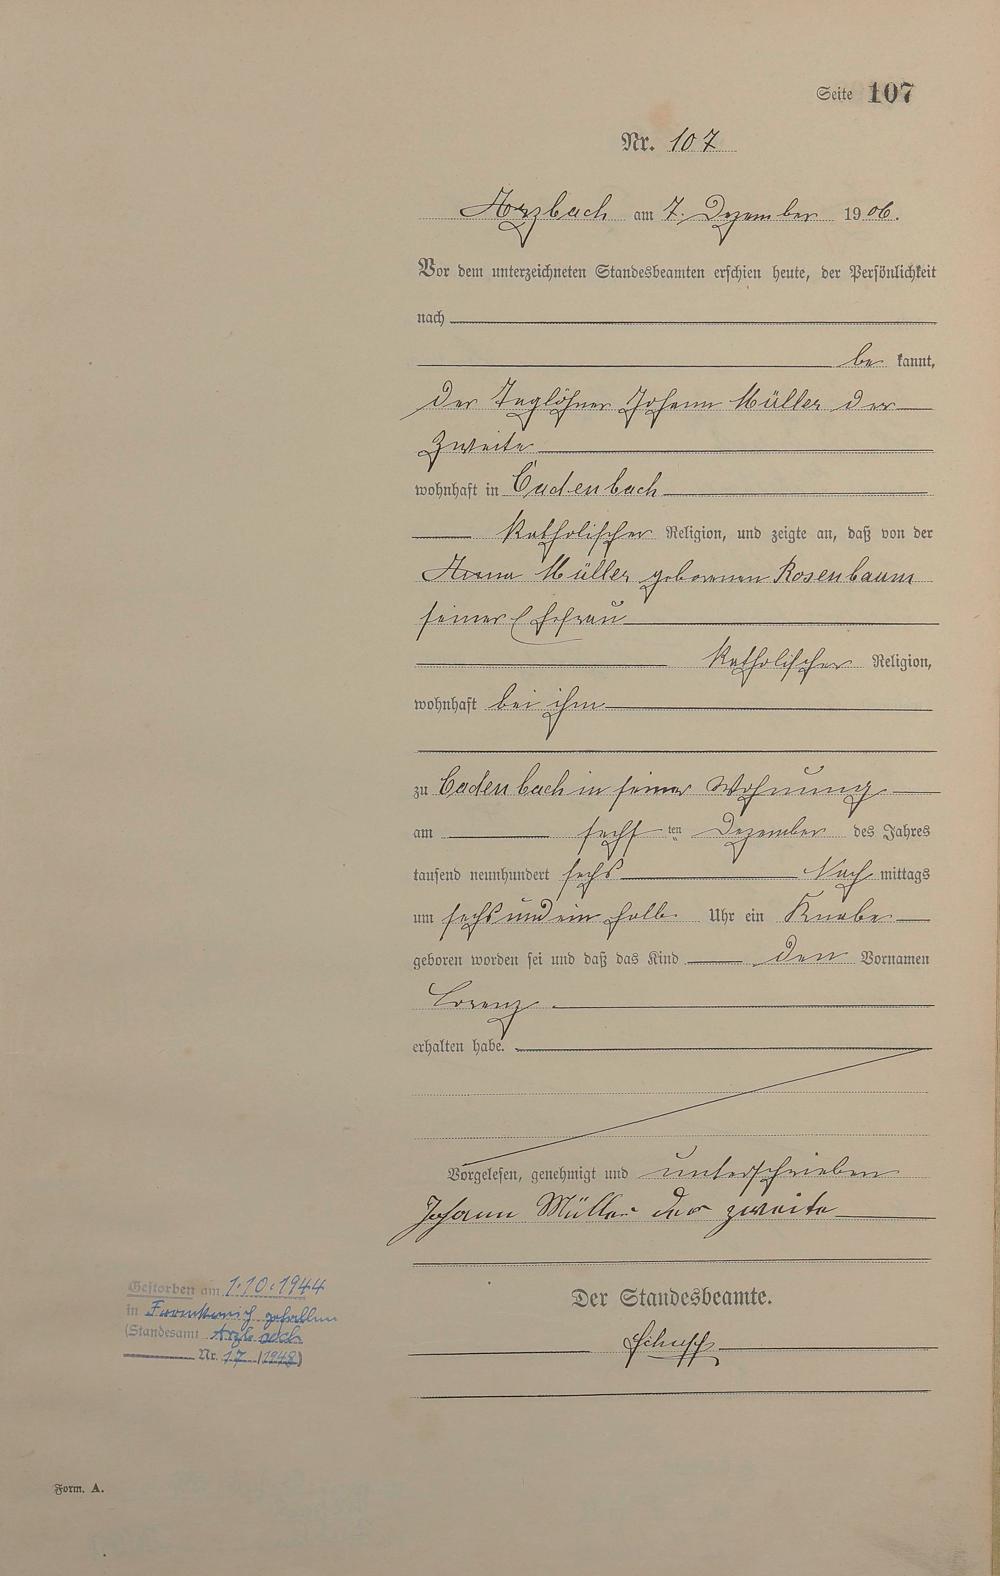 Seite 107
Nr. 107
Arzbach am 7. Dezember 1906.
Vor dem unterzeichneten Standesbeamten erschien heute, der Persönlichkeit
nach
be kannt,
der Taglöhner Johann Müller der
Zweite
wohnhaft in Cadenbach
katholischer Religion, und zeigte an, daß von der
Anna Müller geborenen Rosenbaum
seiner Ehefrau
katholischer Religion,
wohnhaft bei ihm
zu Cadenbach in seiner Wohnung
am sechsten Dezember des Jahres
tausend neunhundert sechs Nach mittags
um sechs und ein halb Uhr ein Knabe
geboren worden sei und daß das Kind den Vornamen
Lorenz
erhalten habe.
Vorgelesen, genehmigt und unterschrieben
Johann Müller der zweite
Der Standesbeamte.
Gestorben am 1.10.1944
in Frankreich gefallen
(Standesamt Arzbach
Nr. 17 /1948)
Form. A.